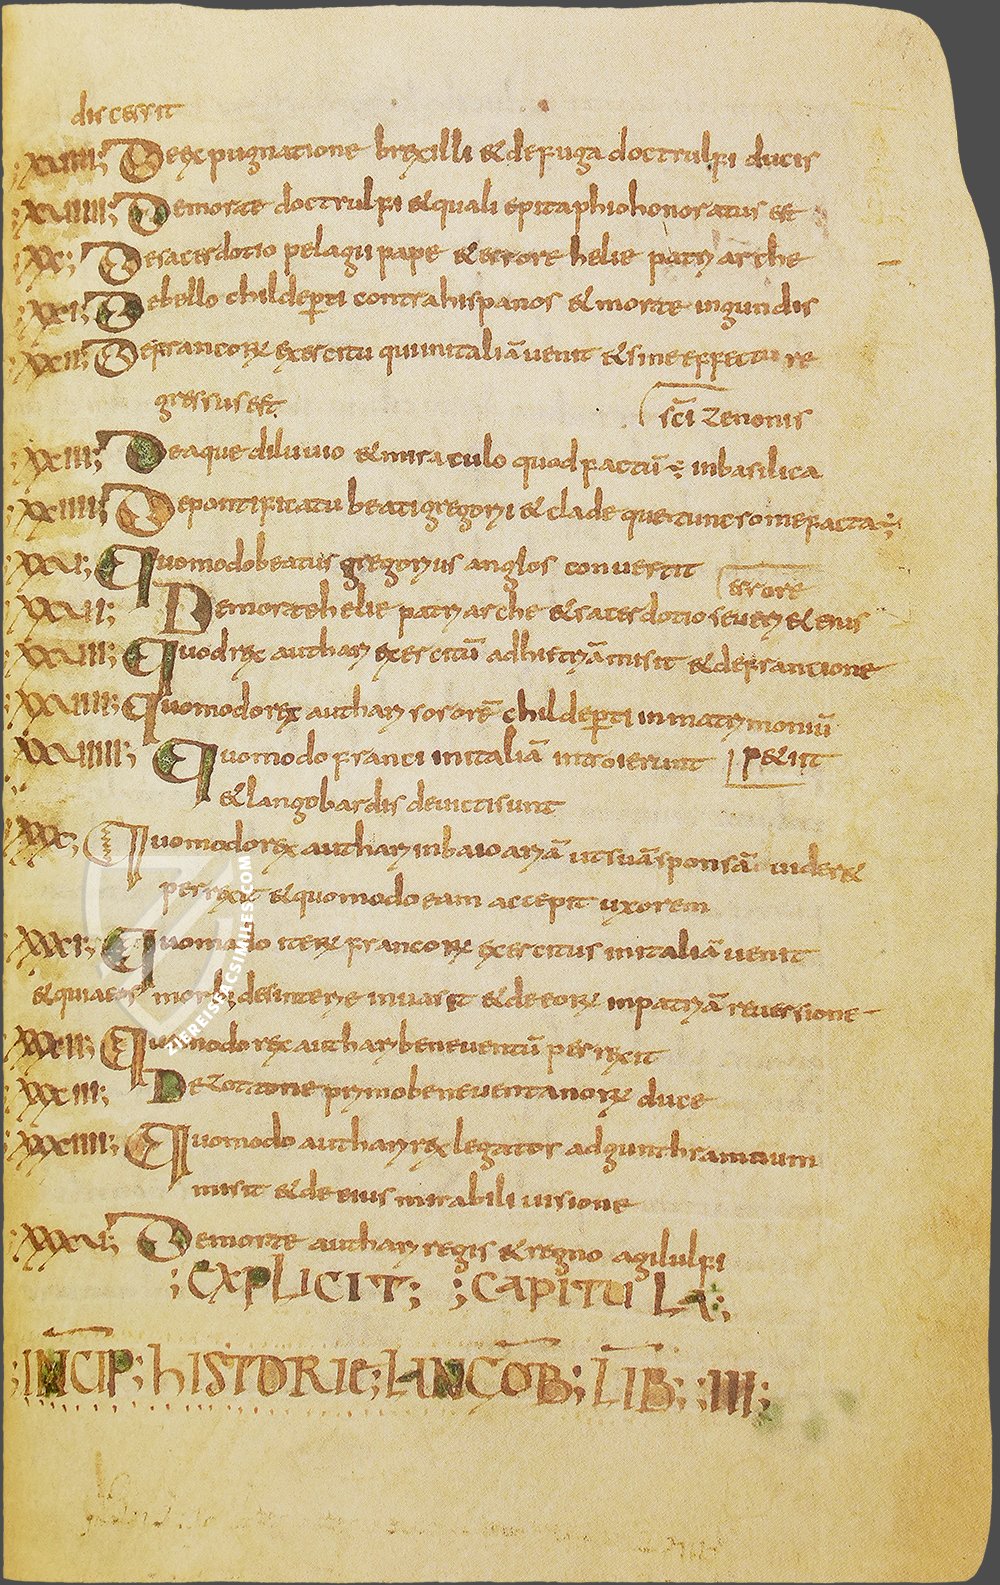 discessit
;XVIII; Deexpugnatione brexilli &defuga doctrulfi ducis
;XVIIII; Demorte doctrulfi &quali epitaphiohonoratus est
;XX; Desacerdotio pelagii pape &errore helie patriarche
;XXI; Debello childeperti contrahispanos &morte ingundis
;XXII; Defrancorꝝ exercitu quiinitaliā venit &sineeffectu re
gressus est.
scī zenonis
;XXIII; Deaquediluvio &miraculo quodfactū ÷ inbasilica
;XXIIII; Depontificatu beatigregorii &clade quetuncromefacta÷;
;XXV; Quomodobeatus gregorius anglos convertit
errore
;XXVII; Demortehelie patriarche &sacerdotioseveri &eius
;XXVIII; Quodrex authari exercitū adhistriāmisit &defrancione
;XXVIIII; Quomodorex authari sororē childeperti inmatrimoniū
;XXVIIIII; Quomodo franci initaliā introierunt petiit
&langobardis devictisunt
;XXX; Quomodorex authariinbaioariā utsuāsponsā videre&
perrexit &quomodoeam accepit uxorem
;XXXI; Quomodo iterꝝ francorꝝ exercitus initaliā venit
&quiaeos morb; desinterie invasit &deeorꝝ inpatriā reversione
;XXXII; Quomodo rex autharibeneventū perrexit
;XXXIII; Dezottone primobeneventanorꝝ duce
;XXXIIII; Quomodo authari rex legatos adgunthramnum
misit &deeius mirabili visione
;XXXV; Demorte authari regis &regno agilulfi
;EXPLICIT; ;CAPITULA;
;INCIP; HISTORIE; LANGOB; LIB; ;III;
ZIEREISFACSIMILES.COM